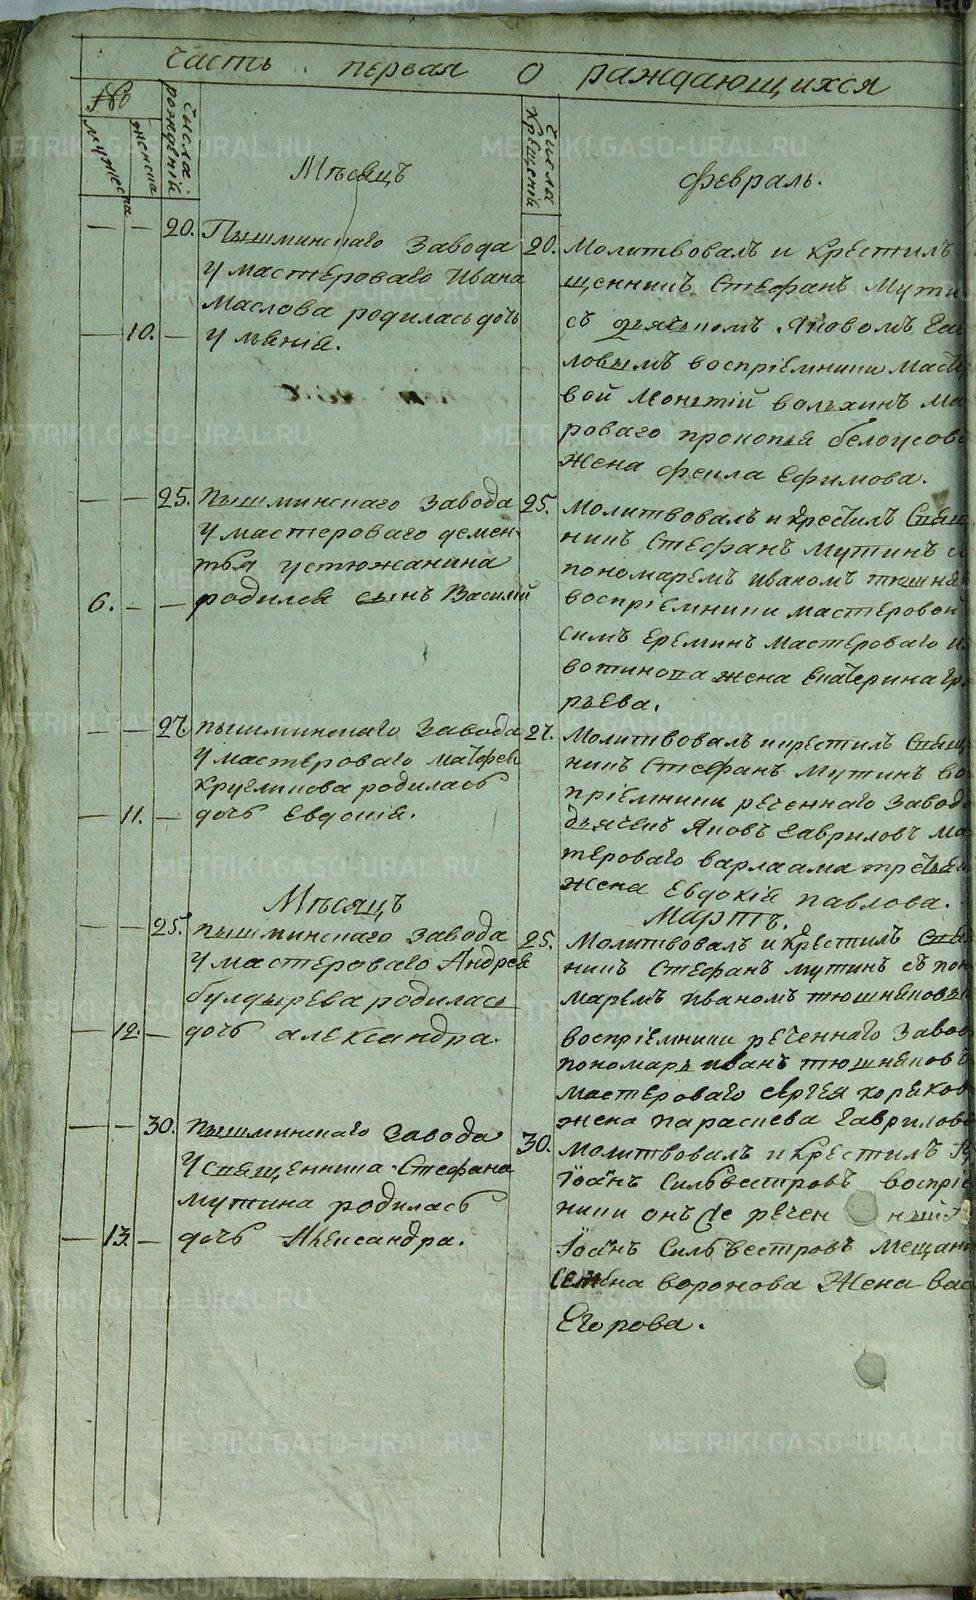 Часть первая О раждающихся
№
мужеска
женска
Числа рождений
Мѣсяцъ
Числа крещений
Февраль.
— — 20. Пышминскаго Завода
у мастероваго Ивана
Маслова родилась дочь
— 10. — Улѣянія.
20. Молитвовалъ и крестилъ
щенникъ Стефанъ Мути
съ дьячькомъ Яковомъ Га
ловымъ воспріемники масте
вой
роваго прокопья белоусов
жена феила Ефимова.
— — 25. пышминскаго завода
у мастероваго демен-
тья устюжанина
6. — — родился сынъ Василій
25. Молитвовалъ и крестилъ Свящ
никъ Стефанъ мутинъ с
пономаремъ иваномъ тюшня
воспріемники мастеровой
симъ Ереминъ мастероваго и
вотинова жена екатерина гр
рьева.
— — 27. пышминскаго завода
у мастероваго матфея
кругликова родилась
— 11. — дочь Евдокія.
27. Молитвовалъ и крестилъ Свящ
никъ Стефанъ мутинъ во
пріемники реченнаго завод
дьячекъ Яковъ гавриловъ ма
тероваго варлаама третья
жена Евдокія павлова.
Мѣсяцъ
Мартъ.
— — 25. пышминскаго завода
у мастероваго Андрея
булдырева родилась
— 12. — дочь александра.
25. Молитвовалъ и крестилъ Свя
никъ Стефанъ мутинъ съ пон
маремъ иваномъ тюшняковы
воспріемники реченнаго заво
пономарь иванъ тюшняковъ
мастероваго сергея хорьков
жена параскева гаврилов
— — 30. пышминскаго завода
у священника Стефана
мутина родилась
— 13. — дочь Александра.
30. Молитвовалъ и крестилъ
Іоанъ Сильвестровъ воспріе
ники онъ же речен ный
Іоанъ Сильвестровъ мещан
Семена воронова жена Вас
Егорова.
METRIKI.GASO-URAL.RU